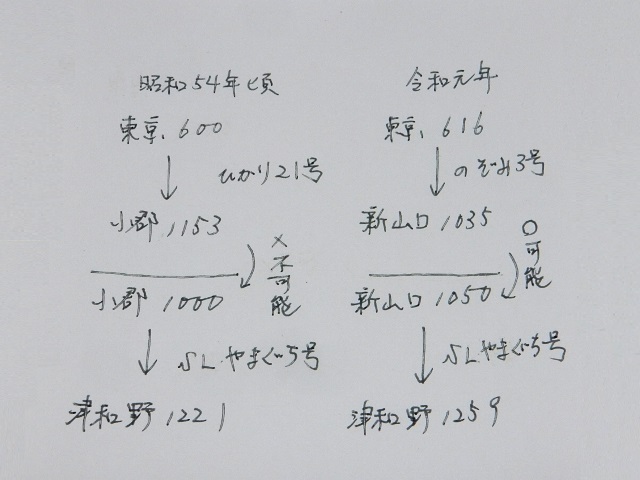 昭和54年頃
東京 600
ひかり21号
小郡 1153
×不可能
小郡 1000
SLやまぐち号
津和野 1221
令和元年
東京 616
のぞみ3号
新山口 1035
○可能
新山口 1050
SLやまぐち号
津和野 1259